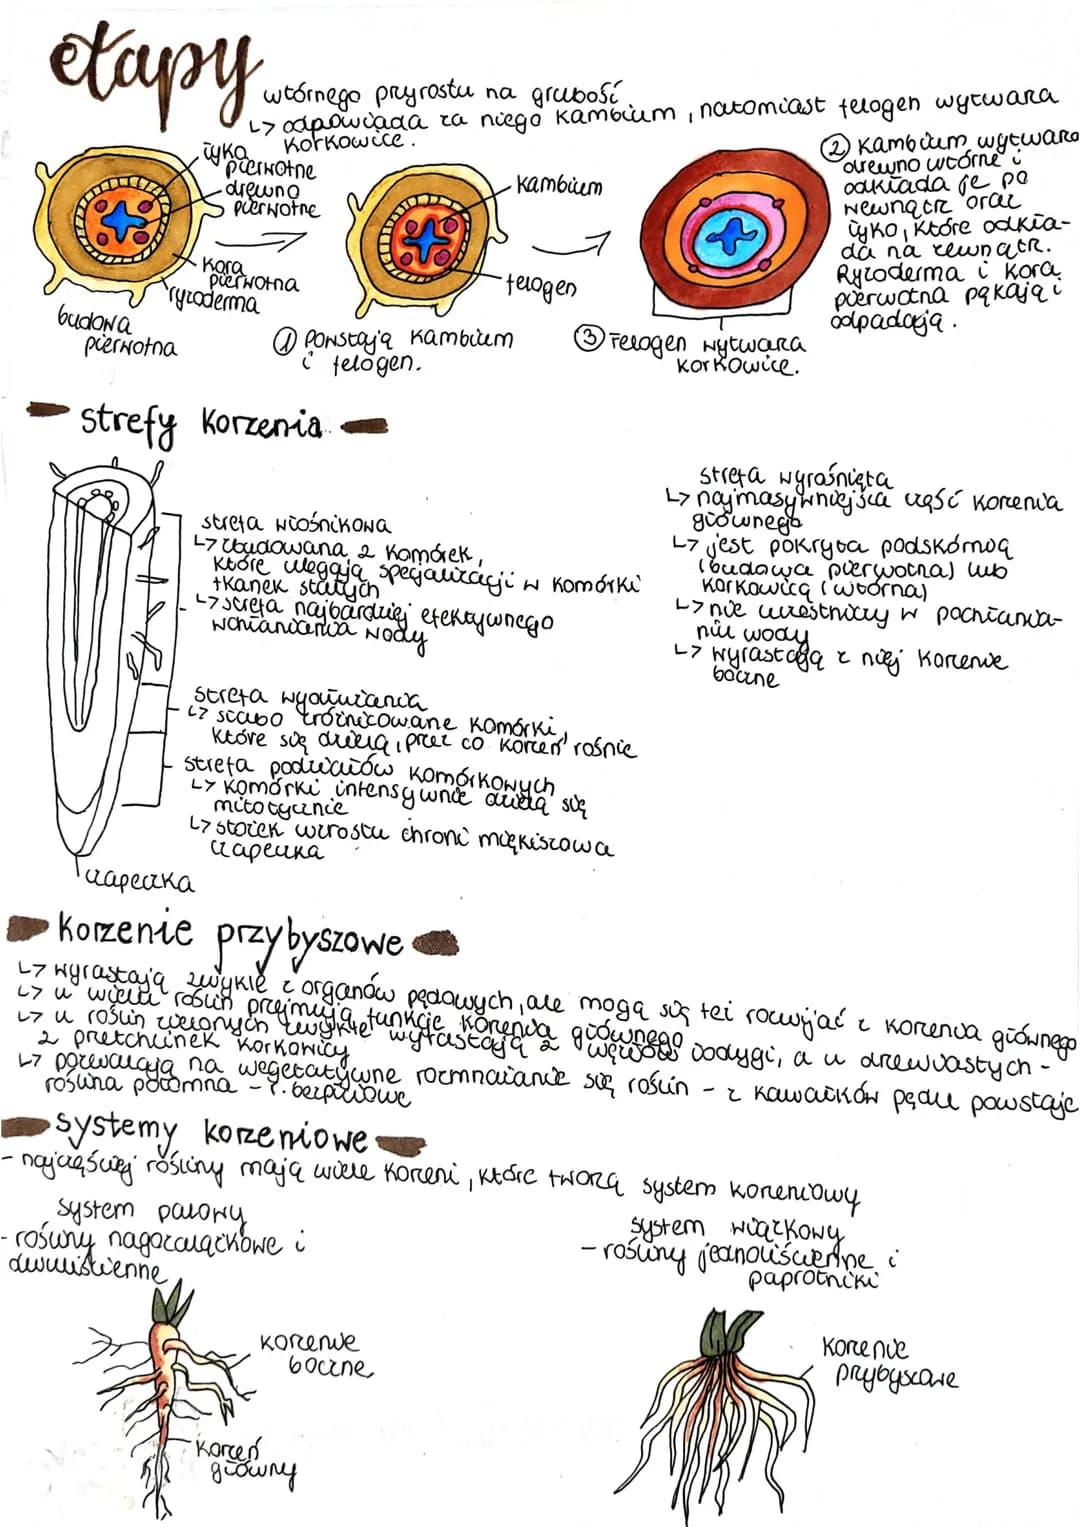 etapy
wtórnego przyrostu na grubość
↳ odpowiada za niego kambium, natomiast felogen wytwarza
korkowicę.
łyko
pierwotne
drewno
pierwotne
kora
pierwotna
ryzoderma
budowa
pierwotna
kambium
felogen
① Powstają kambium
i felogen.
② Kambium wytwarza
drewno wtórne i
odkłada je po
wewnątrz oraz
łyko, które odkła-
da na zewnątrz.
Ryzoderma i kora
pierwotna pękają i
odpadają.
③ Felogen wytwarza
korkowicę.
strefy korzenia
strefa włośnikowa
↳ zbudowana z komórek,
które ulegają specjalizacji w komórki
tkanek stałych
↳ strefa najbardziej efektywnego
wchłaniania wody
strefa wydłużania
↳ słabo zróżnicowane komórki,
które się dzielą, przez co korzeń rośnie
strefa podziałów komórkowych
↳ komórki intensywnie dzielą się
mitotycznie
↳ stożek wzrostu chroni miękiszowa
czapeczka
czapeczka
strefa wyrośnięta
↳ najmasywniejsza część korzenia
głównego
↳ jest pokryta podskórnią
(budowa pierwotna) lub
korkowicą (wtórna)
↳ nie uczestniczy w pochłania-
niu wody
↳ wyrastają z niej korzenie
boczne
korzenie przybyszowe
↳ wyrastają zwykle z organów pędowych, ale mogą się też rozwijać z korzenia głównego
↳ u wielu roślin przejmują funkcję korzenia głównego
↳ u roślin zielonych zwykle wyrastają z węzłów łodygi, a u drzewiastych -
z przetchlinek korkowicy
↳ pozwalają na wegetatywne rozmnażanie się roślin - z kawałków pędu powstaje
roślina potomna - r. bezpłciowe
systemy korzeniowe
- najczęściej rośliny mają wiele korzeni, które tworzą system korzeniowy
system palowy
- rośliny nagozalążkowe i
dwuliścienne
korzenie
boczne
korzeń
główny
system wiązkowy
- rośliny jednoliścienne i
paprotniki
korzenie
przybyszowe